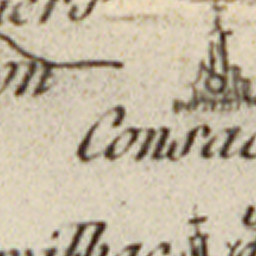 iers
on
Consac
milhac